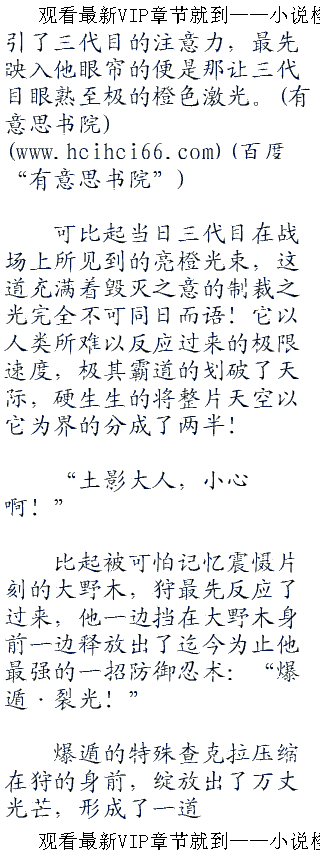 观看最新VIP章节就到——小说楼
引了三代目的注意力，最先
映入他眼帘的便是那让三代
目眼熟至极的橙色激光。(有
意思书院)
(www.hcihci66.com)(百度
“有意思书院”)
可比起当日三代目在战
场上所见到的亮橙光束，这
道充满着毁灭之意的制裁之
光完全不可同日而语！它以
人类所难以反应过来的极限
速度，极其霸道的划破了天
际，硬生生的将整片天空以
它为界的分成了两半！
“土影大人，小心
啊！”
比起被可怕记忆震慑片
刻的大野木，狩最先反应了
过来，他一边挡在大野木身
前一边释放出了迄今为止他
最强的一招防御忍术：“爆
遁·裂光！”
爆遁的特殊查克拉压缩
在狩的身前，绽放出了万丈
光芒，形成了一道
观看最新VIP章节就到——小说楼